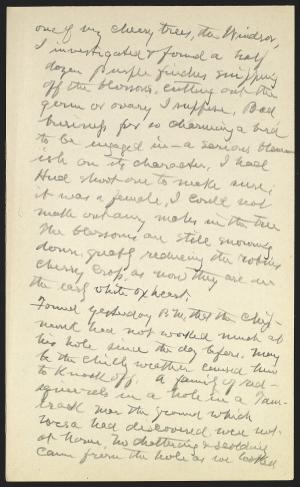 one of my cherry trees, the Windsor,
I investigated & found a half
dozen purple finches snipping
off the blossoms, cutting out the
germ or ovary I suppose. Bad
business for so charming a bird
to be engaged in - a serious blemish
on its character. I had
Hud shoot one to make sure;
it was a female, I could not
make out any males in the tree
The blossoms are still snowing
down, greatly reducing the robins
cherry crop, as now they are in
the early white oxheart.
Found yesterday P.M. that the Chip-
munk had not worked much at
his hole since the day before. May
be the chilly weather caused him
to knock off. A family of red-
squirrels in a hole in a Tam-
arack near the ground which
had discovered were not
at home. No chattering & scolding
came from the hole as we looked